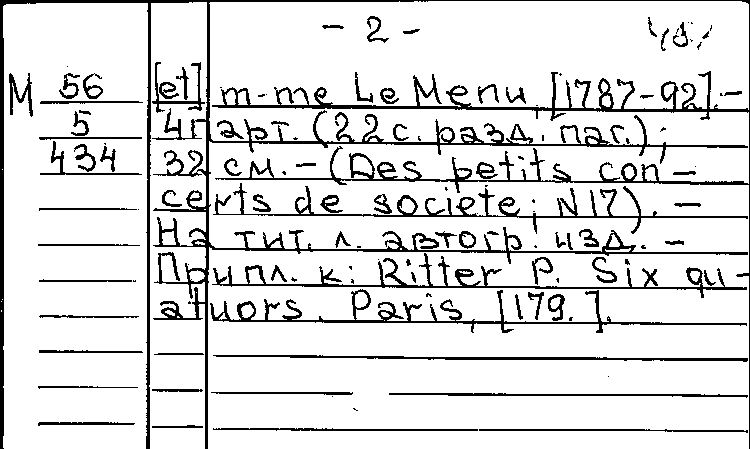 - 2 -
М 56 [et] m-me Le Menu, [1787-92].-
5 4 парт. (22 с. разд. паг.);
434 32 см. - (Des petits con-
certs de societe; N 17). -
На тит. л. автогр. изд. -
Припл. к: Ritter P. Six qu-
atuors. Paris, [179.].